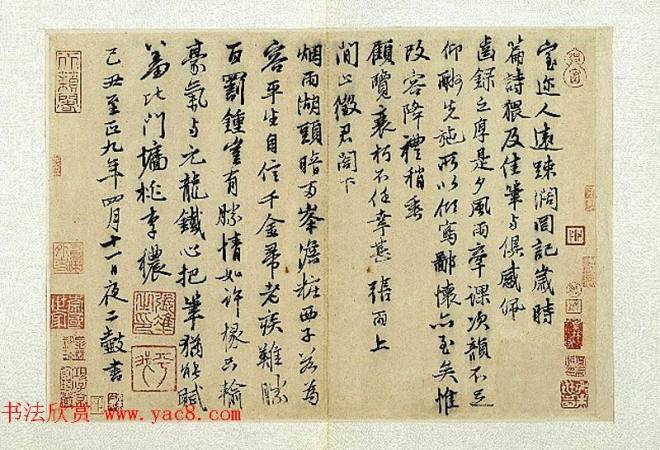 室迩人远踈阔罔記歲時
篇詩猥及佳筆与俱感佩
齒録之厚是夕風雨牽課次韻不足
仰酬先施所以併寫鄙懷亦至矣惟
改容降禮稍垂
顧覽衰朽不任幸甚 張雨上
間止徵君閣下
烟雨湖頭暗两峯濃粧西子爲
容平生自信千金帚老頭難勝
百罰鍾豈有勝情如許掾只輸
豪氣与元龍鐵心把筆猶能賦
比門墻桃李禯
己丑至正九年四月十一日夜二鼓書
书法欣赏 www.yac8.com